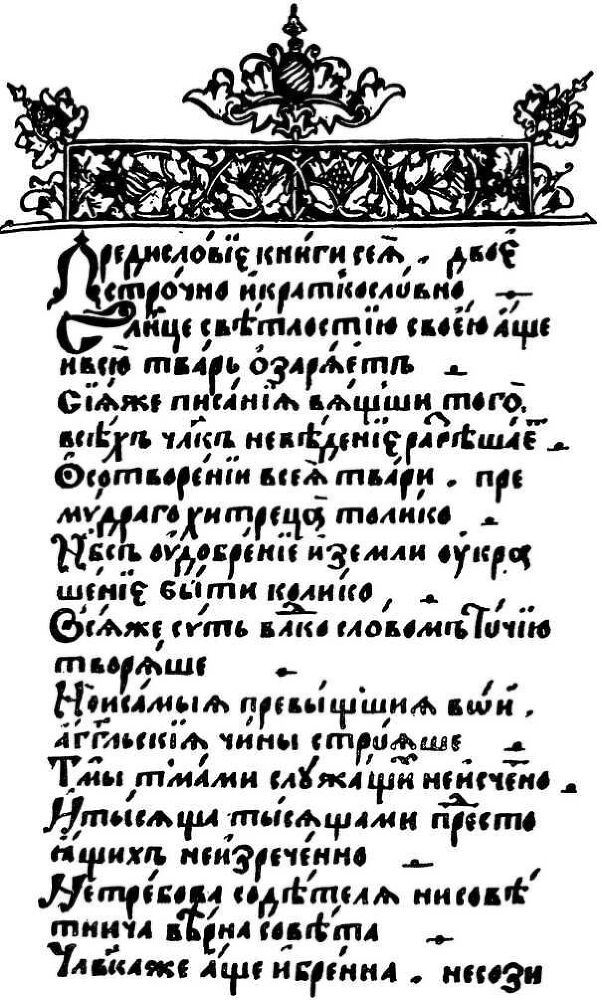 Предисло́вїе кни́ги сея̀ . двоє
стро́чно и҆кра́тїкослѡ́вно
Сл҃нце свѣ́тлостїю своє́ю а҆́ще
ивсю̀ тва́рь о҆заря́етъ
Сїѧ́же писа́нїѧ вѧ́щши того̀
всѣ́хъ чл҃къ невѣ́денїе ра҆зрѣша́е҆т
Ѻ҆сотворе́нїи всеѧ̀ тва́ри . пре
му́драго хи́трецѧ̀ толи́ко
Нб҃съ оу҆добре́нїе и҆земли̑ оу҆кра
ше́нїе бы́ти коли́ко
Всѧ́же су́ть вл҃ко сло́вомъ То́чїю
творѧ́ше
Но и са́мыѧ превы́шшїѧ вѡ́и .
а҆́гг҃льскїѧ чи́ны стро́ѧше
Тмы̀ тма́ми слу́жащїи неи҆счє́но
И ты́сѧща ты́сѧщами прє҃сто
ѧ҆́щихъ неи҆зрече́нно
Не тре́бова содѣ́телѧ нисовѣ́
тнича вѣ́рна совѣ́та
Чл҃вкаже а҆́ще и҆бре́нна . несози